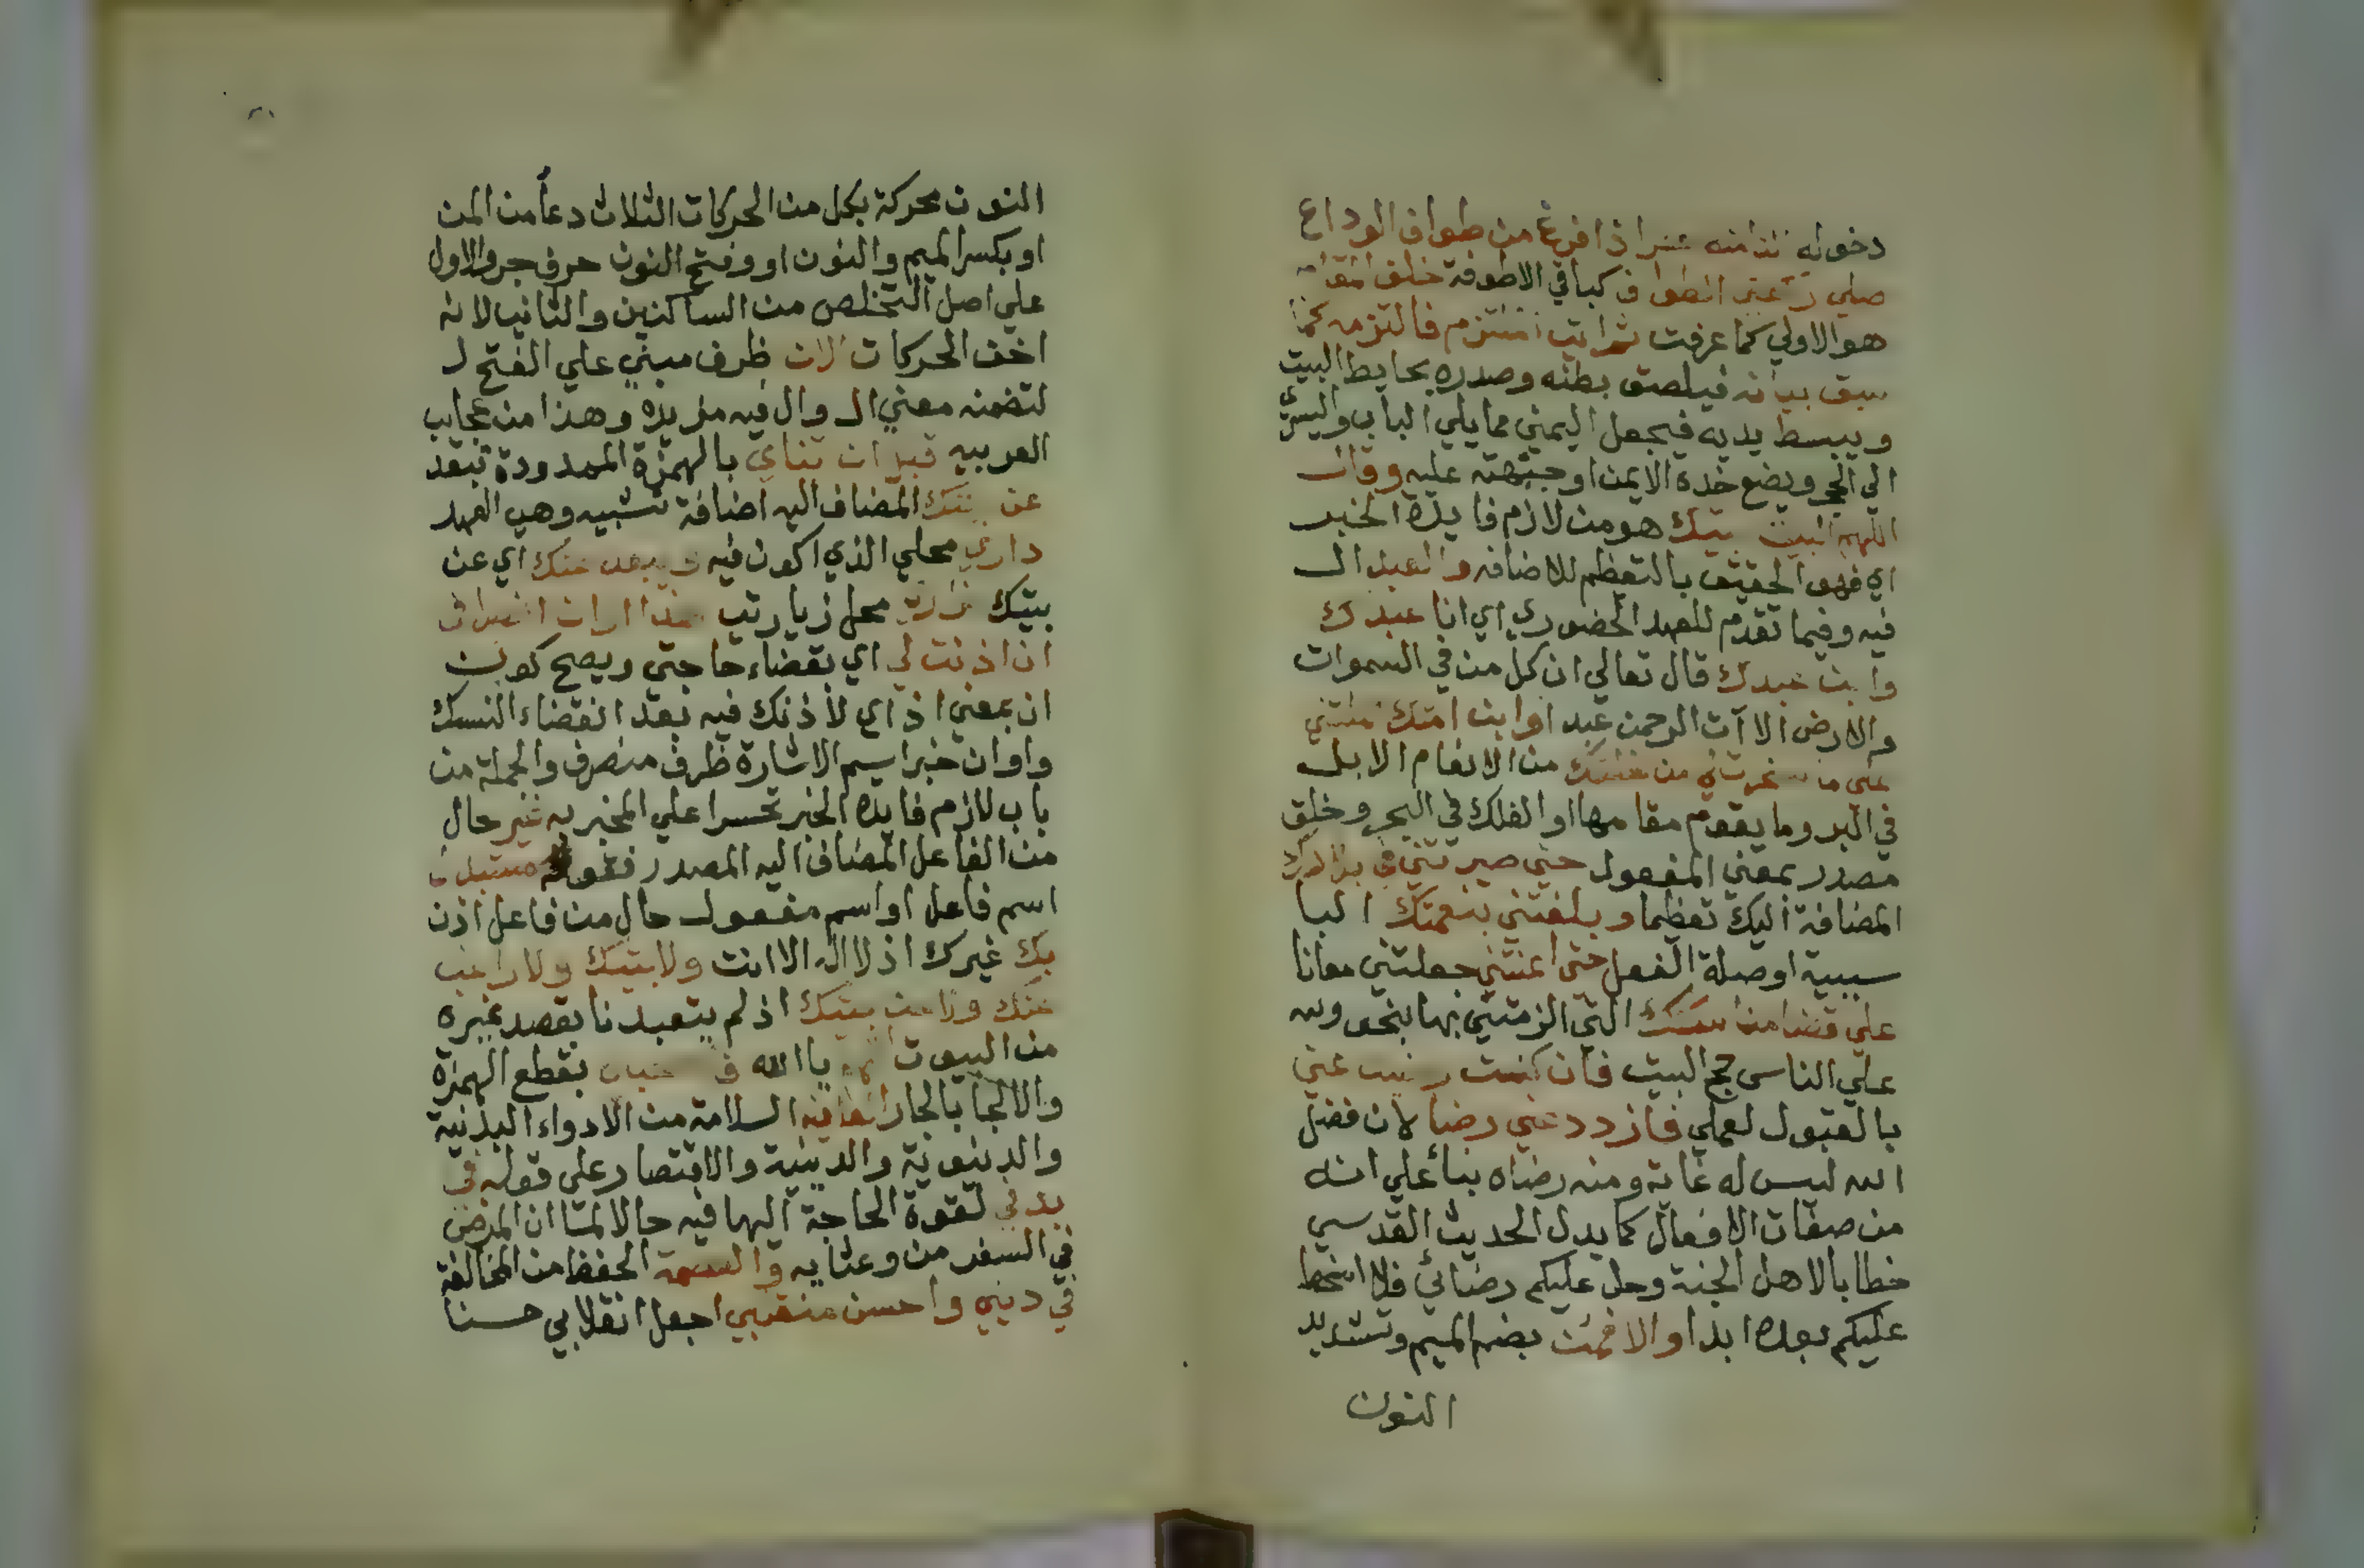 دخوله الثامنة عشر اذا فرغ من طواف الوداع
صلي ركعتي الطواف كباقي الاطوفة خلف المقام
هو الاولي كما عرفت ثم اتي الملتزم فالتزمه كما
سبق بيانه فيلصق بطنه وصدره بحايط البيت
ويبسط يديه فيجعل اليمني مما يلي الباب واليسري
الي الحجر ويضع خده الايمن او جبهته عليه وقال
اللهم البيت بيتك هو من لازم فايدة الخبر
اي فهو الحقيق بالتعظم للاضافه والعبد ال
فيه وفيما تقدم للعهد الحضوري اي انا عبدك
وابن عبدك قال تعالي ان كل من في السموات
والارض الا آت الرحمن عبدا وابن امتك حملتني
علي ما سخرت لي من خلقك من الانعام الابل
في البر وما يقوم مقامها او الفلك في البحر وخلق
مصدر بمعني المفعول حتي صيرتني في بلادك
المضافة اليك تعظما وبلغتني بنعمتك البا
سببية او صلة الفعل حتي اعنتني جعلتني معانا
علي قضا مناسكك التي الزمتني بها بنحو ولله
علي الناس حج البيت فان كنت رضيت عني
بالقبول لعملي فازدد عني رضا لان فضل
الله ليس له غاية ومنه رضاه بنأ علي انه
من صفات الافعال كما يدل الحديث القدسي
خطابا لاهل الجنة وحل عليكم رضائي فلا اسخط
عليكم بعده ابدا والا فمن بضم الميم وتشديد
النون
النون محركة بكل من الحركات الثلاث دعأ من المن
او بكسر الميم والنون او وفتح النون حرف جر والاول
علي اصل التخلص من الساكنين والثاني لانه
اخف الحركات الان ظرف مبني علي الفتح ل
لتضمنه معني ال وال فيه مزيده وهذا من عجايب
العربيه قبل ان تناي بالهمزة الممدودة تبعد
عن بيتك المضاف اليه اضافة تشبيه وهي العهد
داري محلي الذي اكون فيه ويبعد عنك اي عن
بيتك مزاري محل زيارتي هذا اوان انصرافي
ان اذنت لي اي بقضاء حاجتي ويصح كون
ان بمعني اذ اي لاذنك فيه بعد انقضاء النسك
واوان خبر اسم الاشارة ظرف متصرف والجملة من
باب لازم فايده الخبر تحسرا علي المخبر به غير حال
من الفاعل المضاف اليه المصدر فقوله مستبدل
اسم فاعل او اسم مفعول حال من فاعل اذن
بك غيرك اذ لا اله الا انت ولا ببيتك ولا راغب
عنك ولا عن بيتك اذ لم يتعبدنا بقصد غيره
من البيوت اللهم يا الله فاصحبني بقطع الهمزة
والالجأ بالجار العافية السلامة من الادواء البدنية
والدنيوية والدينية والاقتصار علي قوله في
بدني لقوة الحاجة اليها فيه حالا لمتا ان المرض
في السفر من وعثايه والعصمة الحفظ من المخالفة
في ديني واحسن منقلبي اجعل انقلابي حسنا